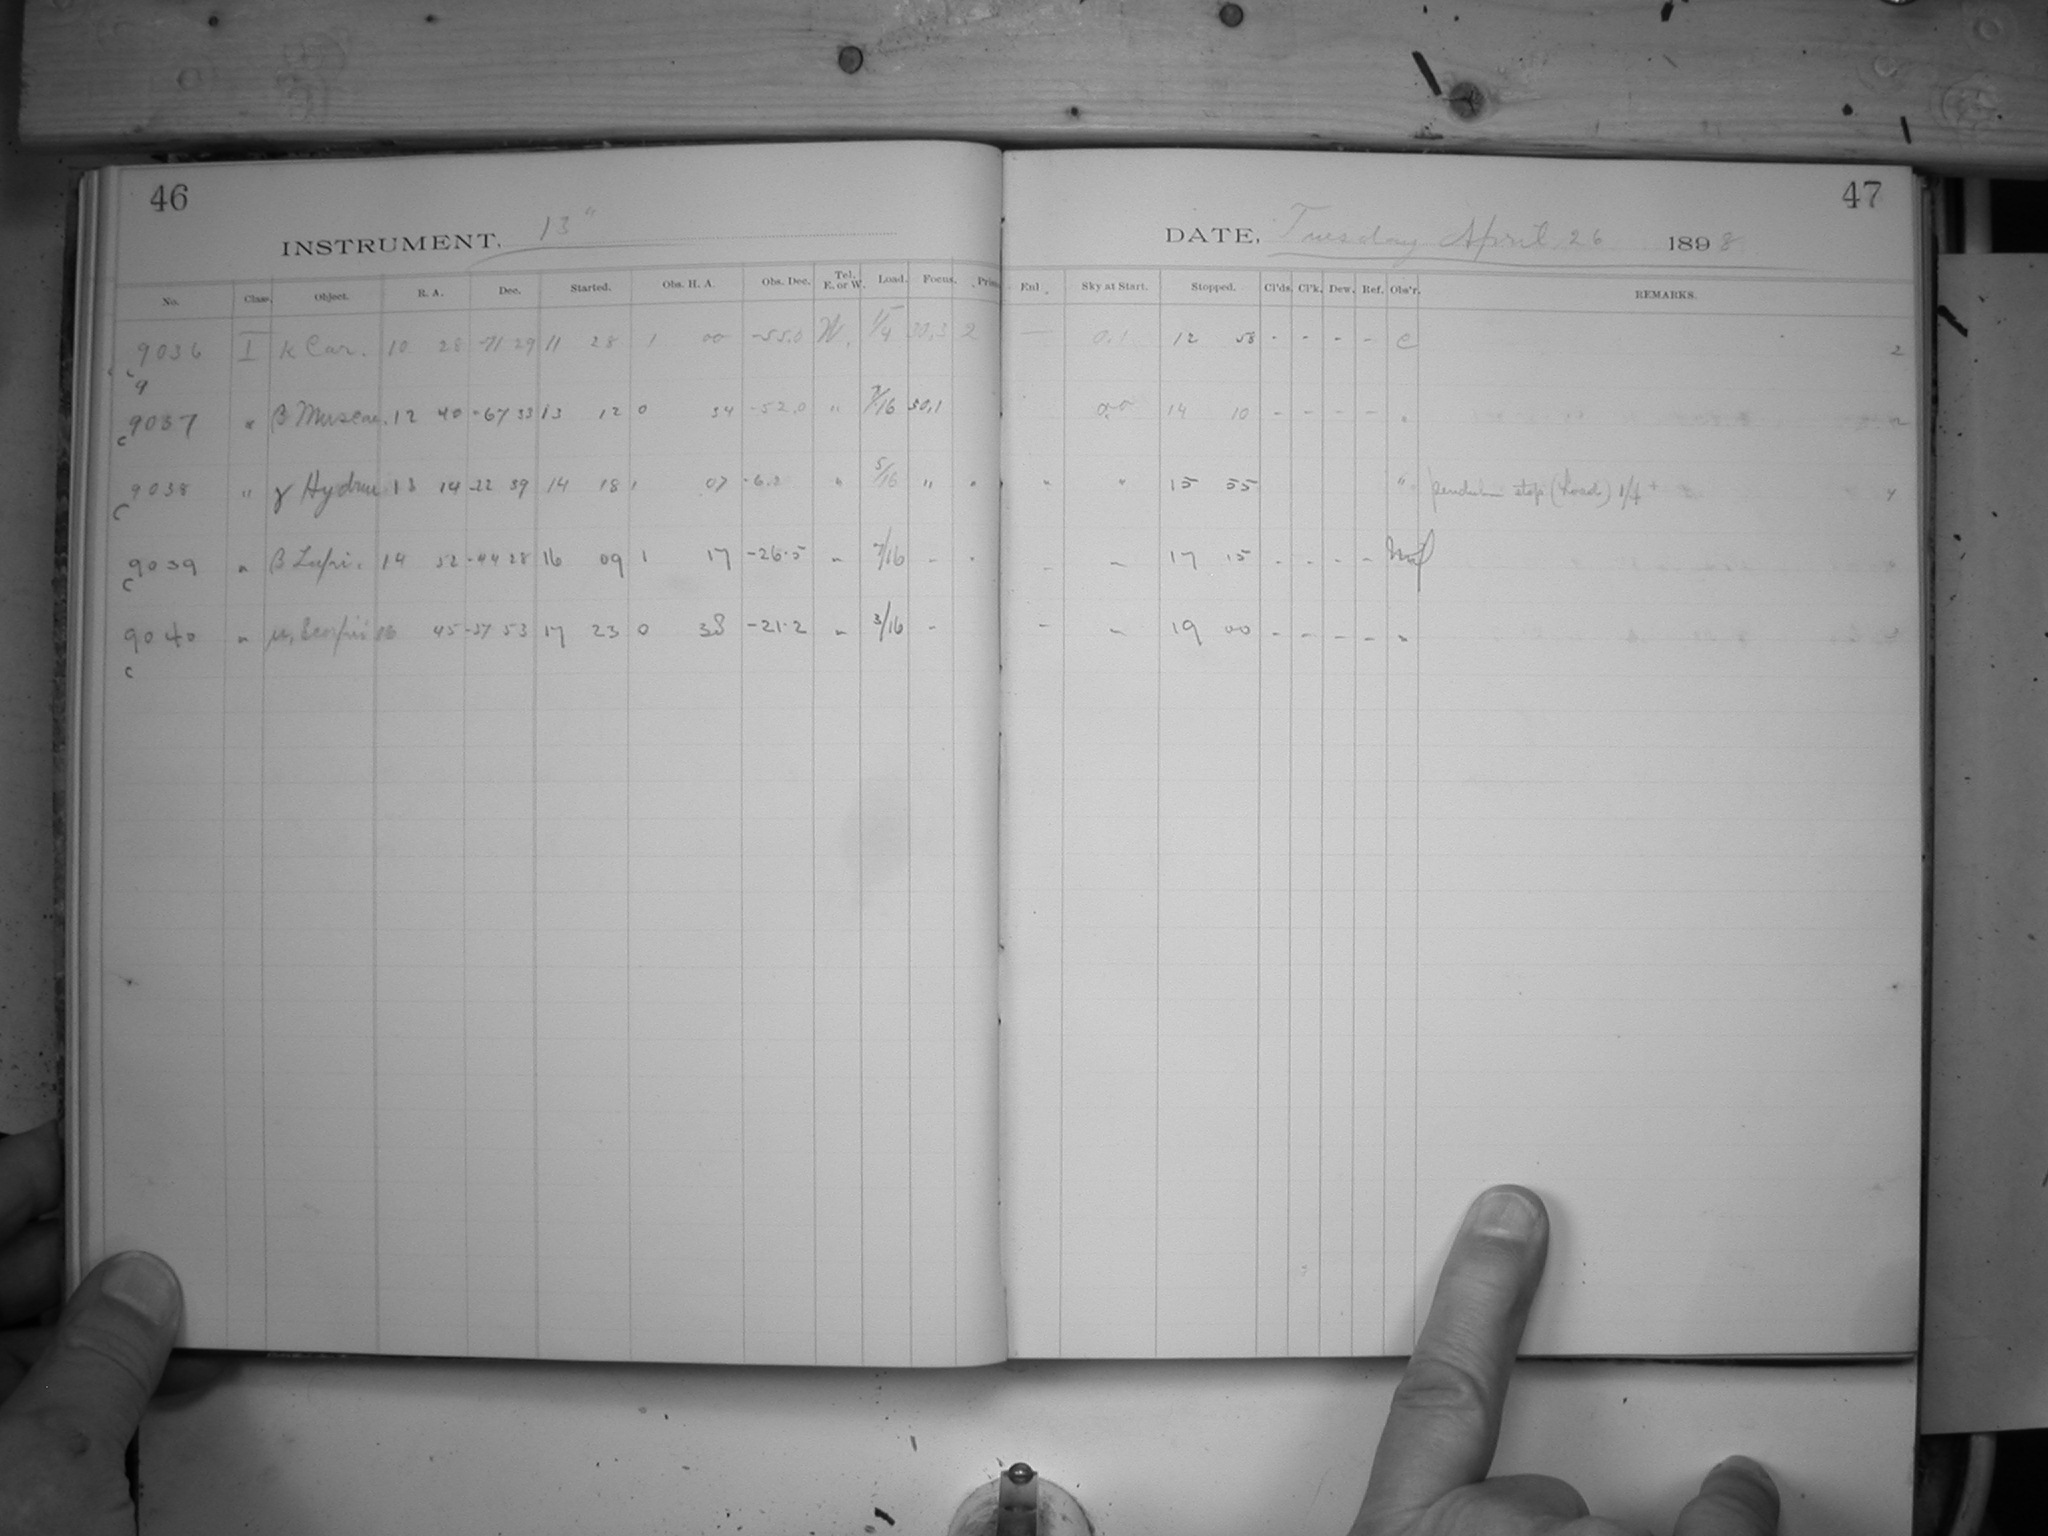 46
INSTRUMENT, 13"
No. Class. Object. R. A. Dec. Started. Obs. H. A. Obs. Dec. Tel. E. or W. Load. Focus.
9036 I k Car. 10 28 -71 29 11 28 1 00 -55.0 W. 1/4 30,3 2
c 9
9037 " β Muscae. 12 40 -67 33 13 12 0 34 -52.0 " 7/16 30,1
c
9038 " γ Hydrae 13 14 -22 39 14 18 1 07 " 5/16 " "
c
9039 " β Lupi. 14 52 -44 28 16 09 1 17 -26.5 " 7/16 - "
c
9040 " μ, Scorpii 16 45 -37 53 17 23 0 38 -21.2 " 3/16 -
c
47
DATE, Tuesday April 26 1898
Enl. Sky at Start. Stopped. Cl'ds. Cl'k. Dew. Ref. Obs'r. REMARKS.
— 0.1 12 58 - - - - C 2
14 10 - - - - "
" " 15 55 " pendulum stop (Load) 1/4 + 4
- " 17 15 - - - -
- " 19 00 - - - - "